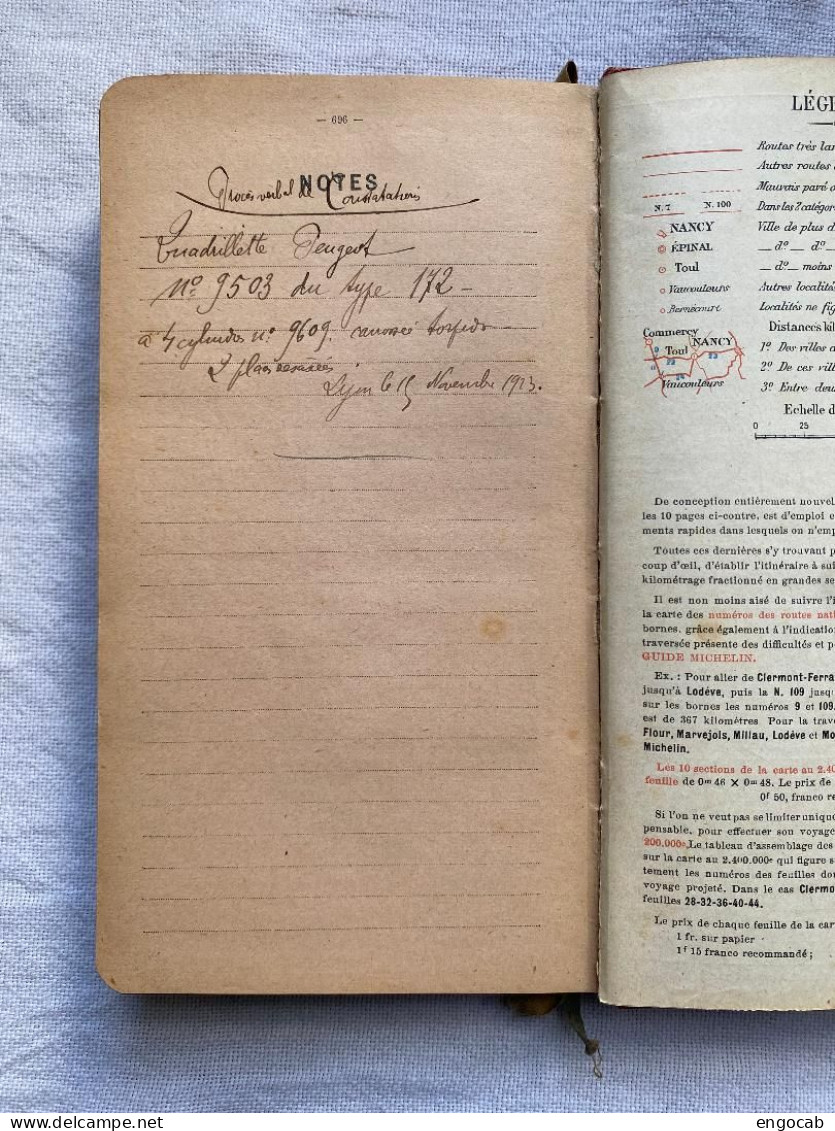 — 696 —
NOTES
Procès verbal de Constatation
Quadrillette Peugeot
N° 9503 du type 172 —
à 4 cylindres n° 9609. carrossé torpedo
2 places
Lyon le 15 Novembre 1923.
LÉGE
Routes très lar
Autres routes
Mauvais pavé o
N. 7 N. 100 Dans les 2 catégor
NANCY Ville de plus d
ÉPINAL — d° — d°
Toul — d° — moins
Vaucouleurs Autres localités
Bernécourt Localités ne fig
Distances kil
Commercy
Toul NANCY
Vaucouleurs
1° Des villes d
2° De ces vill
3° Entre deux
Echelle d
0 25
De conception entièrement nouvel
les 10 pages ci-contre, est d'emploi e
ments rapides dans lesquels on n'emp
Toutes ces dernières s'y trouvant p
coup d'œil, d'établir l'itinéraire à sui
kilométrage fractionné en grandes se
Il est non moins aisé de suivre l'i
la carte des numéros des routes nati
bornes, grâce également à l'indication
traversée présente des difficultés et p
GUIDE MICHELIN.
Ex. : Pour aller de Clermont-Ferra
jusqu'à Lodève, puis la N. 109 jusqu
sur les bornes les numéros 9 et 109.
est de 367 kilomètres. Pour la trave
Flour, Marvejols, Millau, Lodève et Mo
Michelin.
Les 10 sections de la carte au 2.40
feuille de 0m 46 × 0m 48. Le prix de
0f 50, franco re
Si l'on ne veut pas se limiter unique
pensable, pour effectuer son voyage
200.000e. Le tableau d'assemblage des
sur la carte au 2.400.000e qui figure s
tement les numéros des feuilles don
voyage projeté. Dans le cas Clermo
feuilles 28-32-36-40-44.
Le prix de chaque feuille de la car
1 fr. sur papier
1f 15 franco recommandé ;
engocab